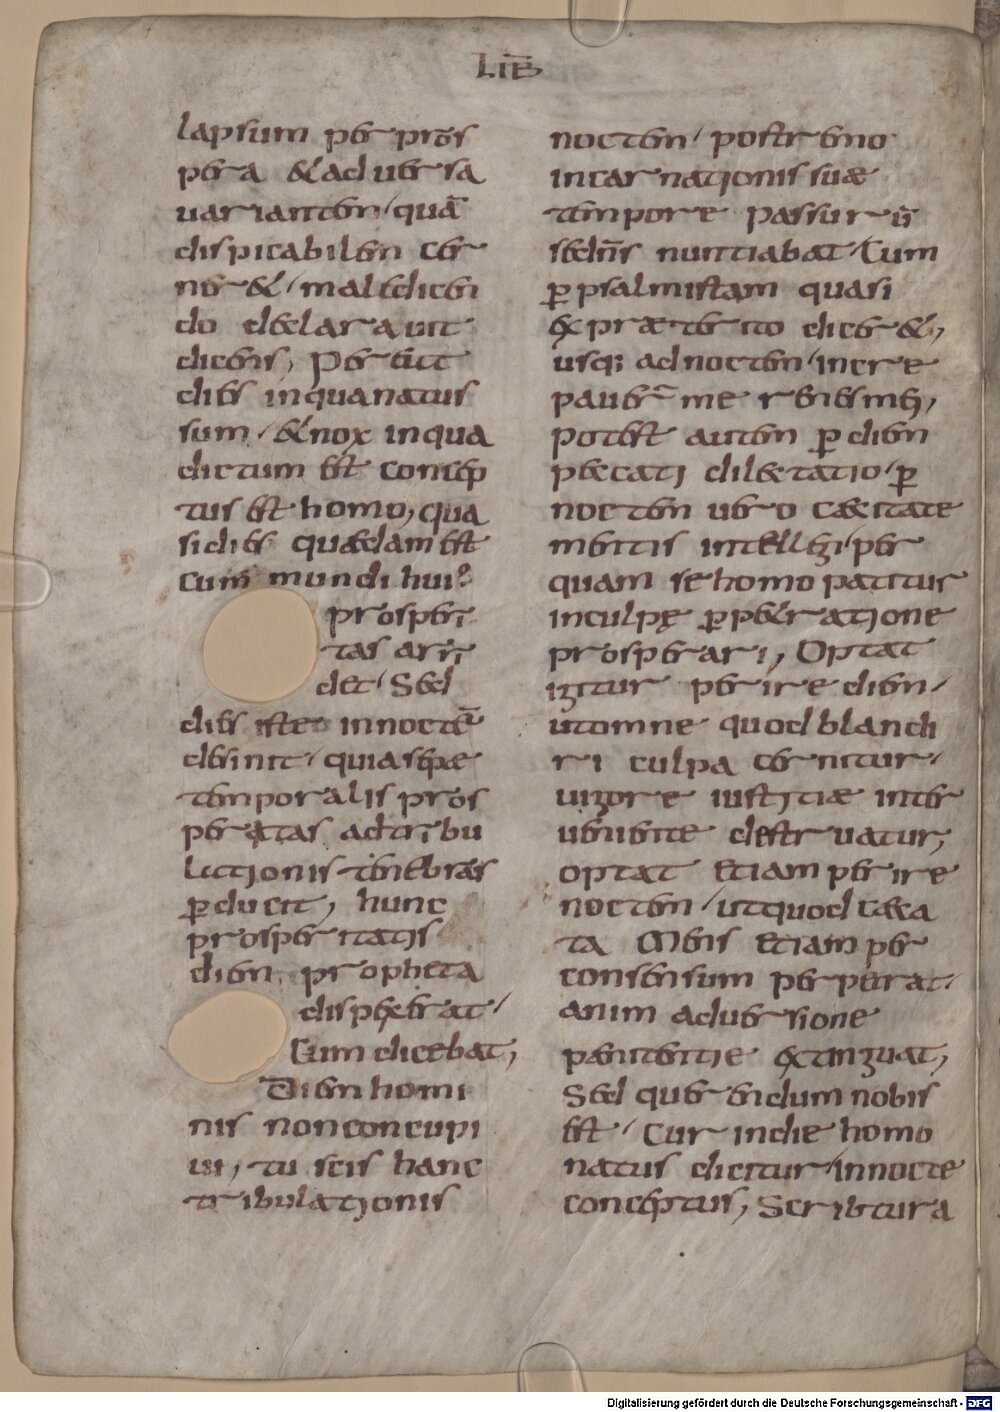 LIB̄
lapsum per pros
pera & aduersa
uariantem, quā
dispicabilem cer
ner&, maledicen
do declarauit
dicens, Pereat
dies inquanatus
sum, & nox inqua
dictum est concep
tus est homo, qua
sidies quaedam est
cum mundi hui'
prosperi
tas arri
det, Sed
dies iste innoctē
desinit, quiasepae
temporalis pros
peritas adtribu
lationis tenebras
ꝑducit, hunc
prosperitatis
diem, propheta
dispexerat,
Cum dicebat,
Diem homi
nis nonconcupi
ui, tu scis hanc
tribulationis
noctem, postremo
incarnationis suae
tempore passurū
sedn̄s nuntiabat, Cum
ꝑ psalmistam quasi
ex praeterito dicer&,
usq; adnoctem, incre
pauer̄ me renes mei,
Potest autem ꝑ diem
peccati dilectatio, ꝑ
noctem uero caecitate
mentis intellegi, per
quam se homo patitur
inculpę ꝑp&ratione
prosperari, Optat
igitur perire diem,
utomne quod blandi
ri culpa cernitur,
uigore iustitiae inter
ueniente destruatur,
optat etiam perire
noctem, utquod caeca
ta mens etiam per
consensum perpetrat,
anim aduersione
penitentie extinguat,
Sed querendum nobis
est, Cur indie homo
natus dicitur, innocte
conceptus, Scribtura
Digitalisierung gefördert durch die Deutsche Forschungsgemeinschaft - DFG